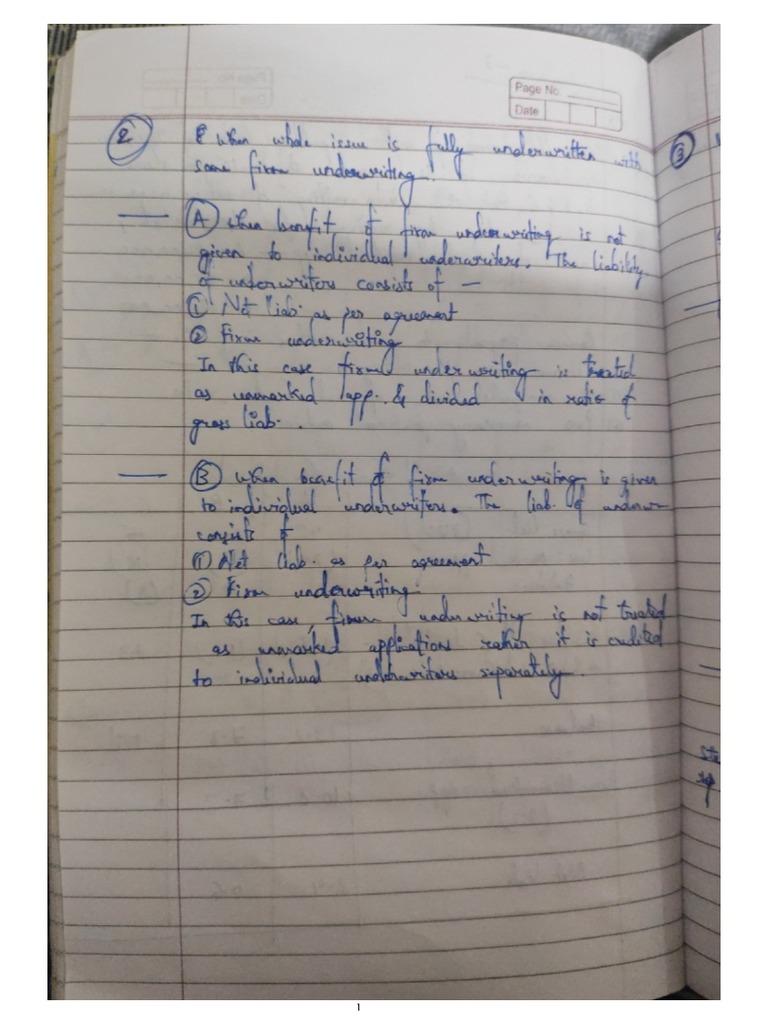 Page No.
Date
② When whole issue is fully underwritten with
some firm underwriting.
Ⓐ When benefit of firm underwriting is not
given to individual underwriters. The liability
of underwriters consists of —
① Net liab. as per agreement
② Firm underwriting
In this case firm underwriting is treated
as unmarked app. & divided in ratio of
gross liab.
Ⓑ When benefit of firm underwriting is given
to individual underwriters. The liab. of underw-
consists of
① Net liab. as per agreement
② Firm underwriting.
In this case, firm underwriting is not treated
as unmarked applications rather it is credited
to individual underwriters separately.
③
1